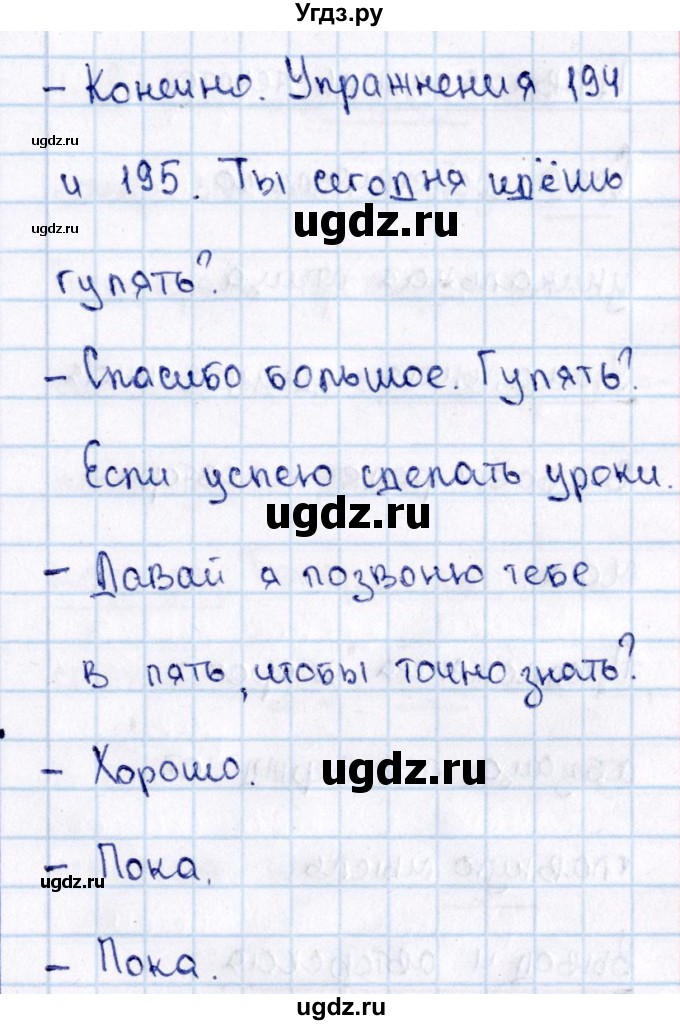 Угдз.ру
– Конечно. Упражнения 194
ugdz.ru
и 195. Ты сегодня идёшь
ugdz.ru
ugdz.ru
гулять?
– Спасибо большое. Гулять?
Если успею сделать уроки.
ugdz.ru
– Давай я позвоню тебе
в пять, чтобы точно знать?
– Хорошо.
ugdz.ru
– Пока.
ugdz.ru
– Пока.
ugdz.ru